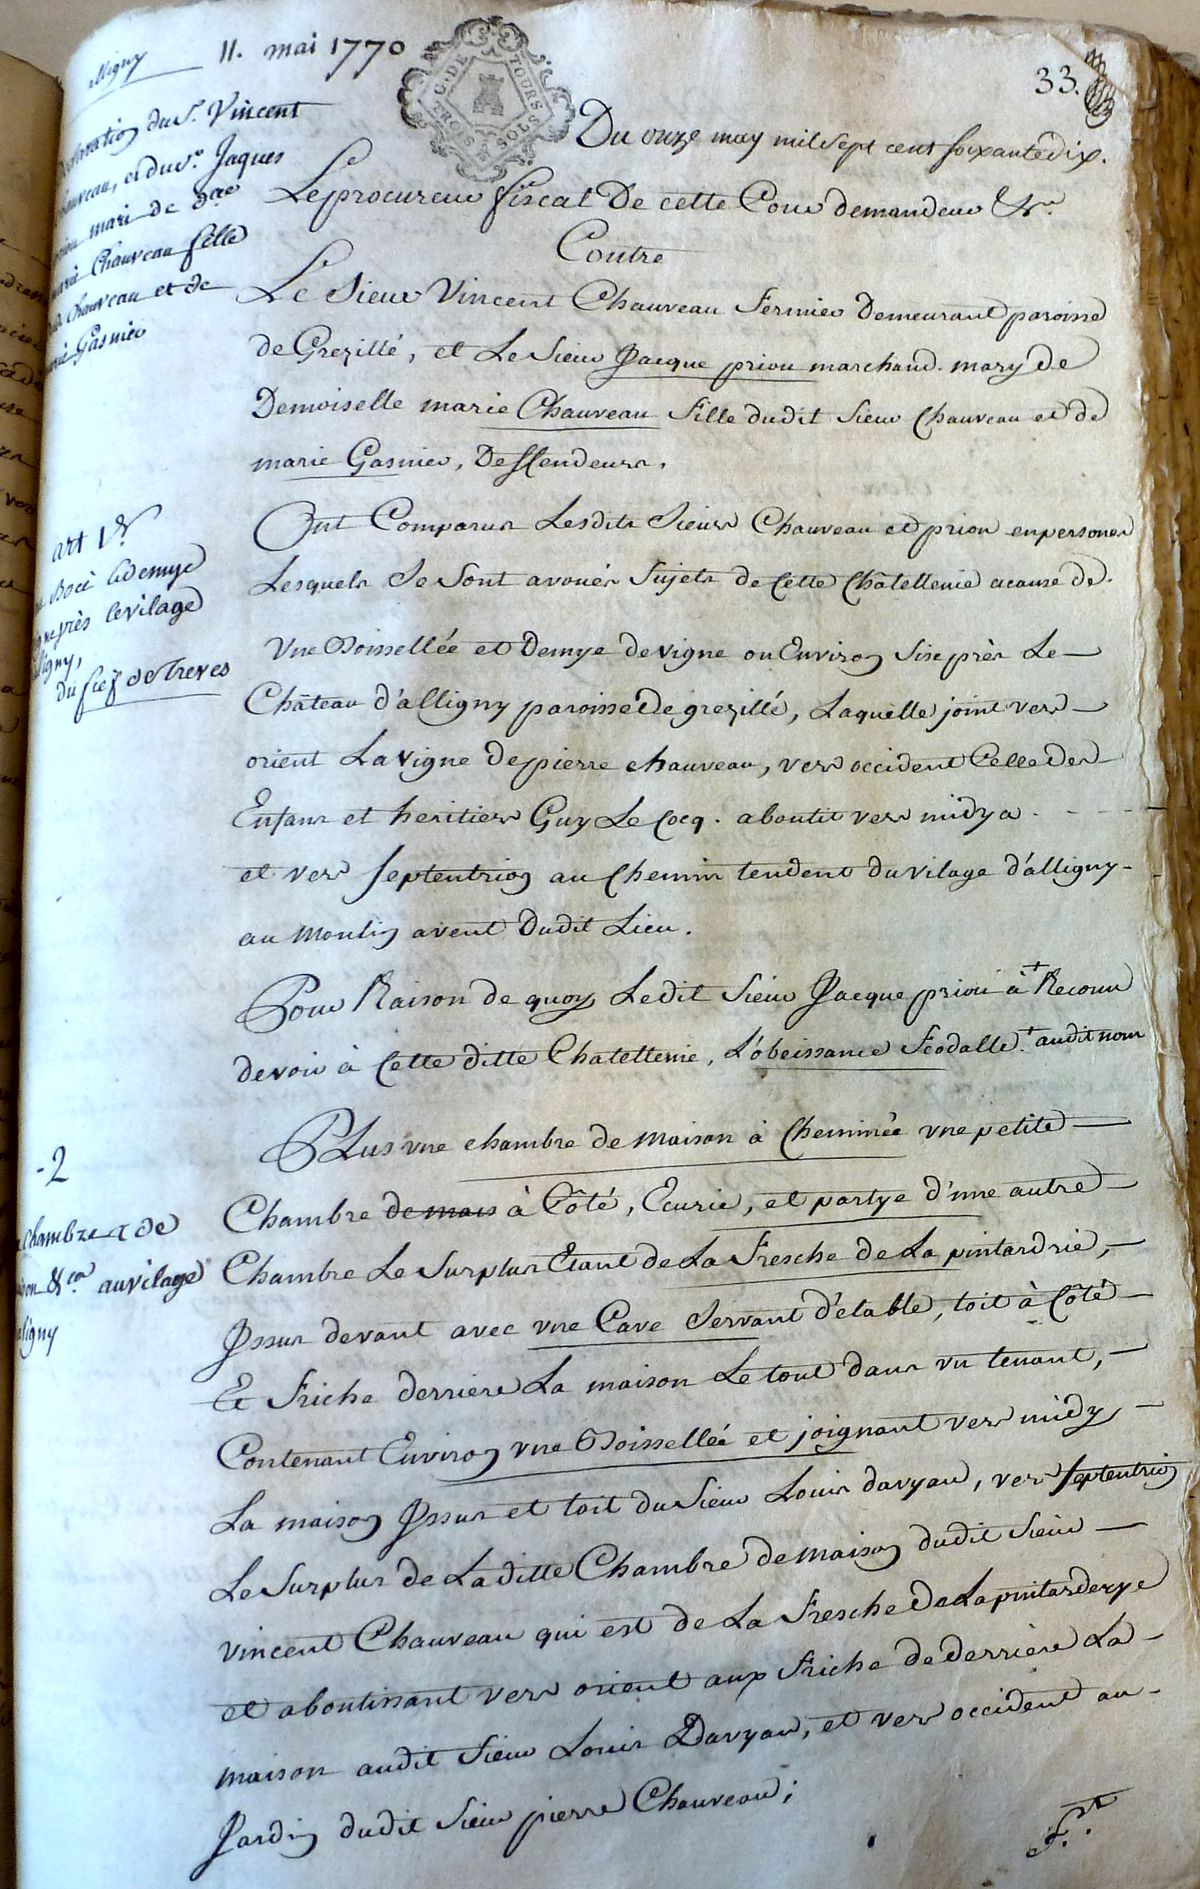 alligny
11. mai 1770
G. DE TOURS
TROIS SOLS
33.
du Sr. Vincent
Chauveau, et du Sr. Jaques
priou mari de Dlle
marie Chauveau fille
dud. Chauveau et de
marie Gasnier
Du onze may mil sept cent soixante dix.
Le procureur fiscal De cette Cour demandeur &ca
Contre
Le Sieur Vincent Chauveau Fermier Demeurant paroisse
de Grezillé, et Le Sieur Jacque priou marchand. mary de
Demoiselle marie Chauveau fille dudit Sieur Chauveau et de
marie Gasnier, Deffendeurs.
Ont Comparus Lesdits Sieurs Chauveau et priou en personnes
Lesquels Se Sont avoués Sujets de Cette Châtellenie acause de.
art 1er
Bocée & demye
près le vilage
alligny,
du fief de Treves
Une Boissellée et Demye de vigne ou Environ Size près Le
Château d'alligny paroisse De grezillé, Laquelle joint vers
orient La vigne De pierre chauveau, vers occident Celle Des
Enfans et heritiers Guy Le Cocq. aboutit vers midy a
et vers septentrion au Chemin tendent du vilage d'alligny
au Moulin avent Dudit Lieu.
Pour Raison de quoy Ledit Sieur Jacque priou à + Reconnu
devoir à Cette ditte Chatellenie, L'obeissance Feodalle. + audit nom
-2
chambre de
maison &ca au vilage
alligny
PLus une chambre de maison à Cheminée une petite
Chambre de mais à Côté, Ecurie, et partye d'une autre
Chambre Le Surplus Etant de La Fresche de La pintardrie,
Jssus devant avec une Cave Servant d'étable, toit à Côté
Et Friche derriere La maison Le tout dans un tenant,
Contenant Environ une Boissellée et joignant vers midy
La maison Jssus et toit du Sieur Louis davyau, vers septentrion
Le Surplus de La ditte Chambre de maison dudit Sieur
Vincent Chauveau qui est de La Fresche De La pintarderye
et aboutissant vers orient aux Friche de derrière La
maison audit Sieur Louis Davyau, et vers occident au
Jardin dudit Sieur pierre Chauveau;